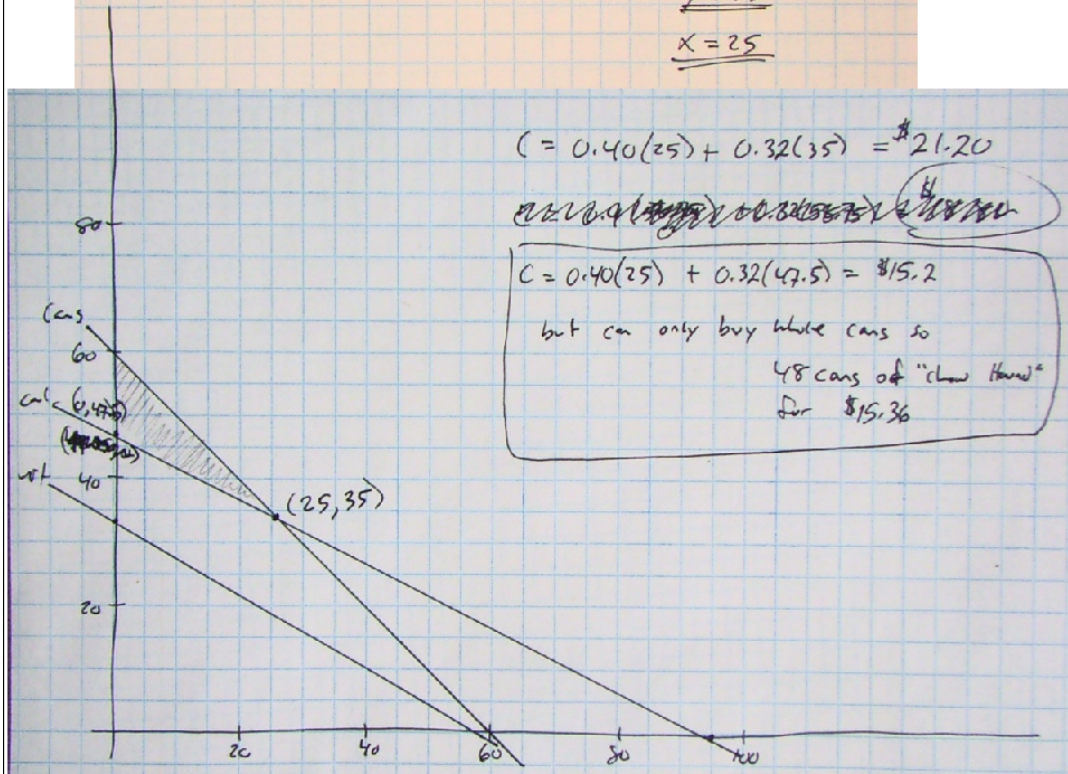 x = 25
C = 0.40(25) + 0.32(35) = $21.20
$
C = 0.40(25) + 0.32(47.5) = $15.2
but can only buy whole cans so
48 cans of "Chow Hound"
for $15.36
80
Cans
60
(0,47.5)
wt
40
(25,35)
20
20
40
60
80
100